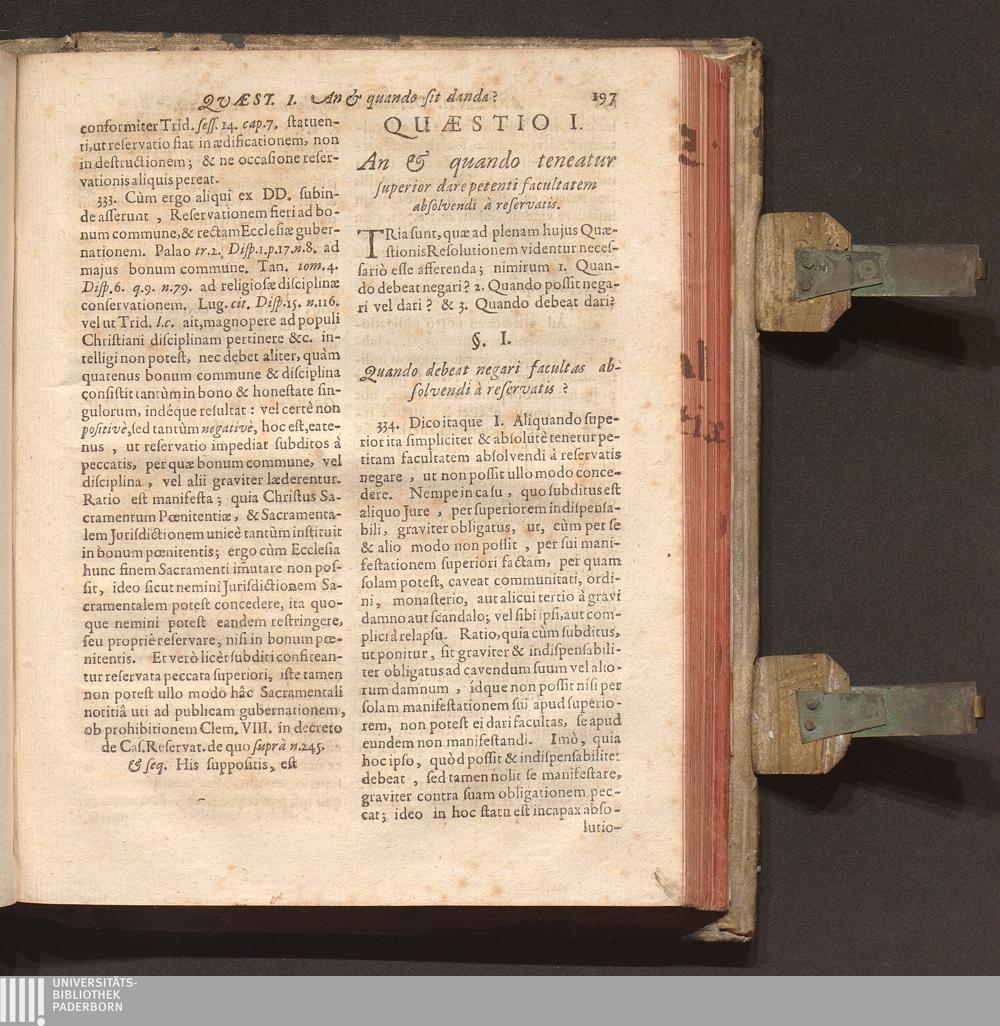 QUÆST. I. An & quando sit danda? 197
conformiter Trid. sess. 14. cap. 7. statuen-
ti, ut reservatio fiat in ædificationem, non
in destructionem; & ne occasione reser-
vationis aliquis pereat.
333. Cùm ergo aliqui ex DD. subin-
de asserunt, Reservationem fieri ad bo-
num commune, & rectam Ecclesiæ guber-
nationem. Palao tr. 2. Disp. 1. p. 17. n. 8. ad
majus bonum commune. Tan. tom. 4.
Disp. 6. q. 9. n. 79. ad religiosæ disciplinæ
conservationem. Lug. cit. Disp. 15. n. 116.
vel ut Trid. l. c. ait, magnopere ad populi
Christiani disciplinam pertinere &c. in-
telligi non potest, nec debet aliter, quàm
quatenus bonum commune & disciplina
consistit tantùm in bono & honestate sin-
gulorum, indéque resultat: vel certè non
positivè, sed tantùm negativè, hoc est, eate-
nus, ut reservatio impediat subditos à
peccatis, per quæ bonum commune, vel
disciplina, vel alii graviter læderentur.
Ratio est manifesta; quia Christus Sa-
cramentum Pœnitentiæ, & Sacramenta-
lem Jurisdictionem unicè tantùm instituit
in bonum pœnitentis; ergo cùm Ecclesia
hunc finem Sacramenti imutare non pos-
sit, ideo sicut nemini Jurisdictionem Sa-
cramentalem potest concedere, ita quo-
que nemini potest eandem restringere,
seu propriè reservare, nisi in bonum pœ-
nitentis. Et verò licèt subditi confitean-
tur reservata peccata superiori, iste tamen
non potest ullo modo hâc Sacramentali
notitiâ uti ad publicam gubernationem,
ob prohibitionem Clem. VIII. in decreto
de Cas. Reservat. de quo suprà n. 245.
& seq. His suppositis, est
QUÆSTIO I.
An & quando teneatur
superior dare petenti facultatem
absolvendi à reservatis.
TRia sunt, quæ ad plenam hujus Quæ-
stionis Resolutionem videntur neces-
sariò esse afferenda; nimirum 1. Quan-
do debeat negari? 2. Quando possit nega-
ri vel dari? & 3. Quando debeat dari?
§. I.
Quando debeat negari facultas ab-
solvendi à reservatis?
334. Dico itaque I. Aliquando supe-
rior ita simpliciter & absolutè tenetur pe-
titam facultatem absolvendi à reservatis
negare, ut non possit ullo modo conce-
dere. Nempe in casu, quo subditus est
aliquo Jure, per superiorem indispensa-
bili, graviter obligatus, ut, cùm per se
& alio modo non possit, per sui mani-
festationem superiori factam, per quam
solam potest, caveat communitati, ordi-
ni, monasterio, aut alicui tertio à gravi
damno aut scandalo; vel sibi ipsi, aut com-
plici à relapsu. Ratio, quia cùm subditus,
ut ponitur, sit graviter & indispensabili-
ter obligatus ad cavendum suum vel alio-
rum damnum, idque non possit nisi per
solam manifestationem sui apud superio-
rem, non potest ei dari facultas, se apud
eundem non manifestandi. Imò, quia
hoc ipso, quòd possit & indispensabiliter
debeat, sed tamen nolit se manifestare,
graviter contra suam obligationem pec-
cat; ideo in hoc statu est incapax abso-
lutio-
UNIVERSITÄTS-
BIBLIOTHEK
PADERBORN